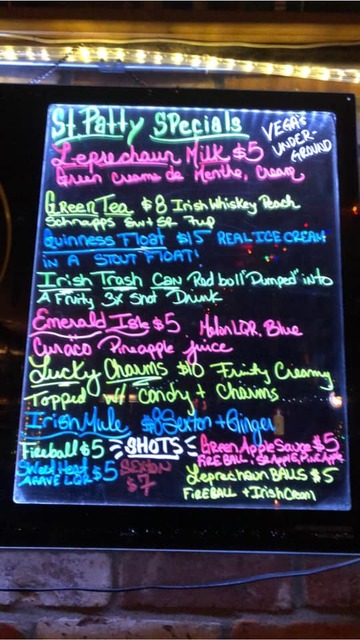 St. Patty Specials
VEGA'S UNDER-GROUND
Leprechaun Milk $5
Green creme de Menthe, Cream
Green Tea $8 Irish Whiskey Peach
Schnapps Sw+SR 7up
Guinness Float $15 REAL ICE CREAM
IN A STOUT FLOAT!
Irish Trash Can Red bull "Dumped" into
A Fruity 3x Shot Drunk
Emerald Isle $5 Melon LQR, Blue
Curaco Pineapple juice
Lucky Charms $10 Fruity Creamy
Topped w/ candy + Charms
Irish Mule $8 Sexton + Ginger
Fireball $5 SHOTS Green Apple Sauce $5
FIREBALL, SR APPLE, PINEAPPLE
$5 SEXTON
AGAVE LQR $7
Leprechaun BALLS $5
FIREBALL + Irish Cream